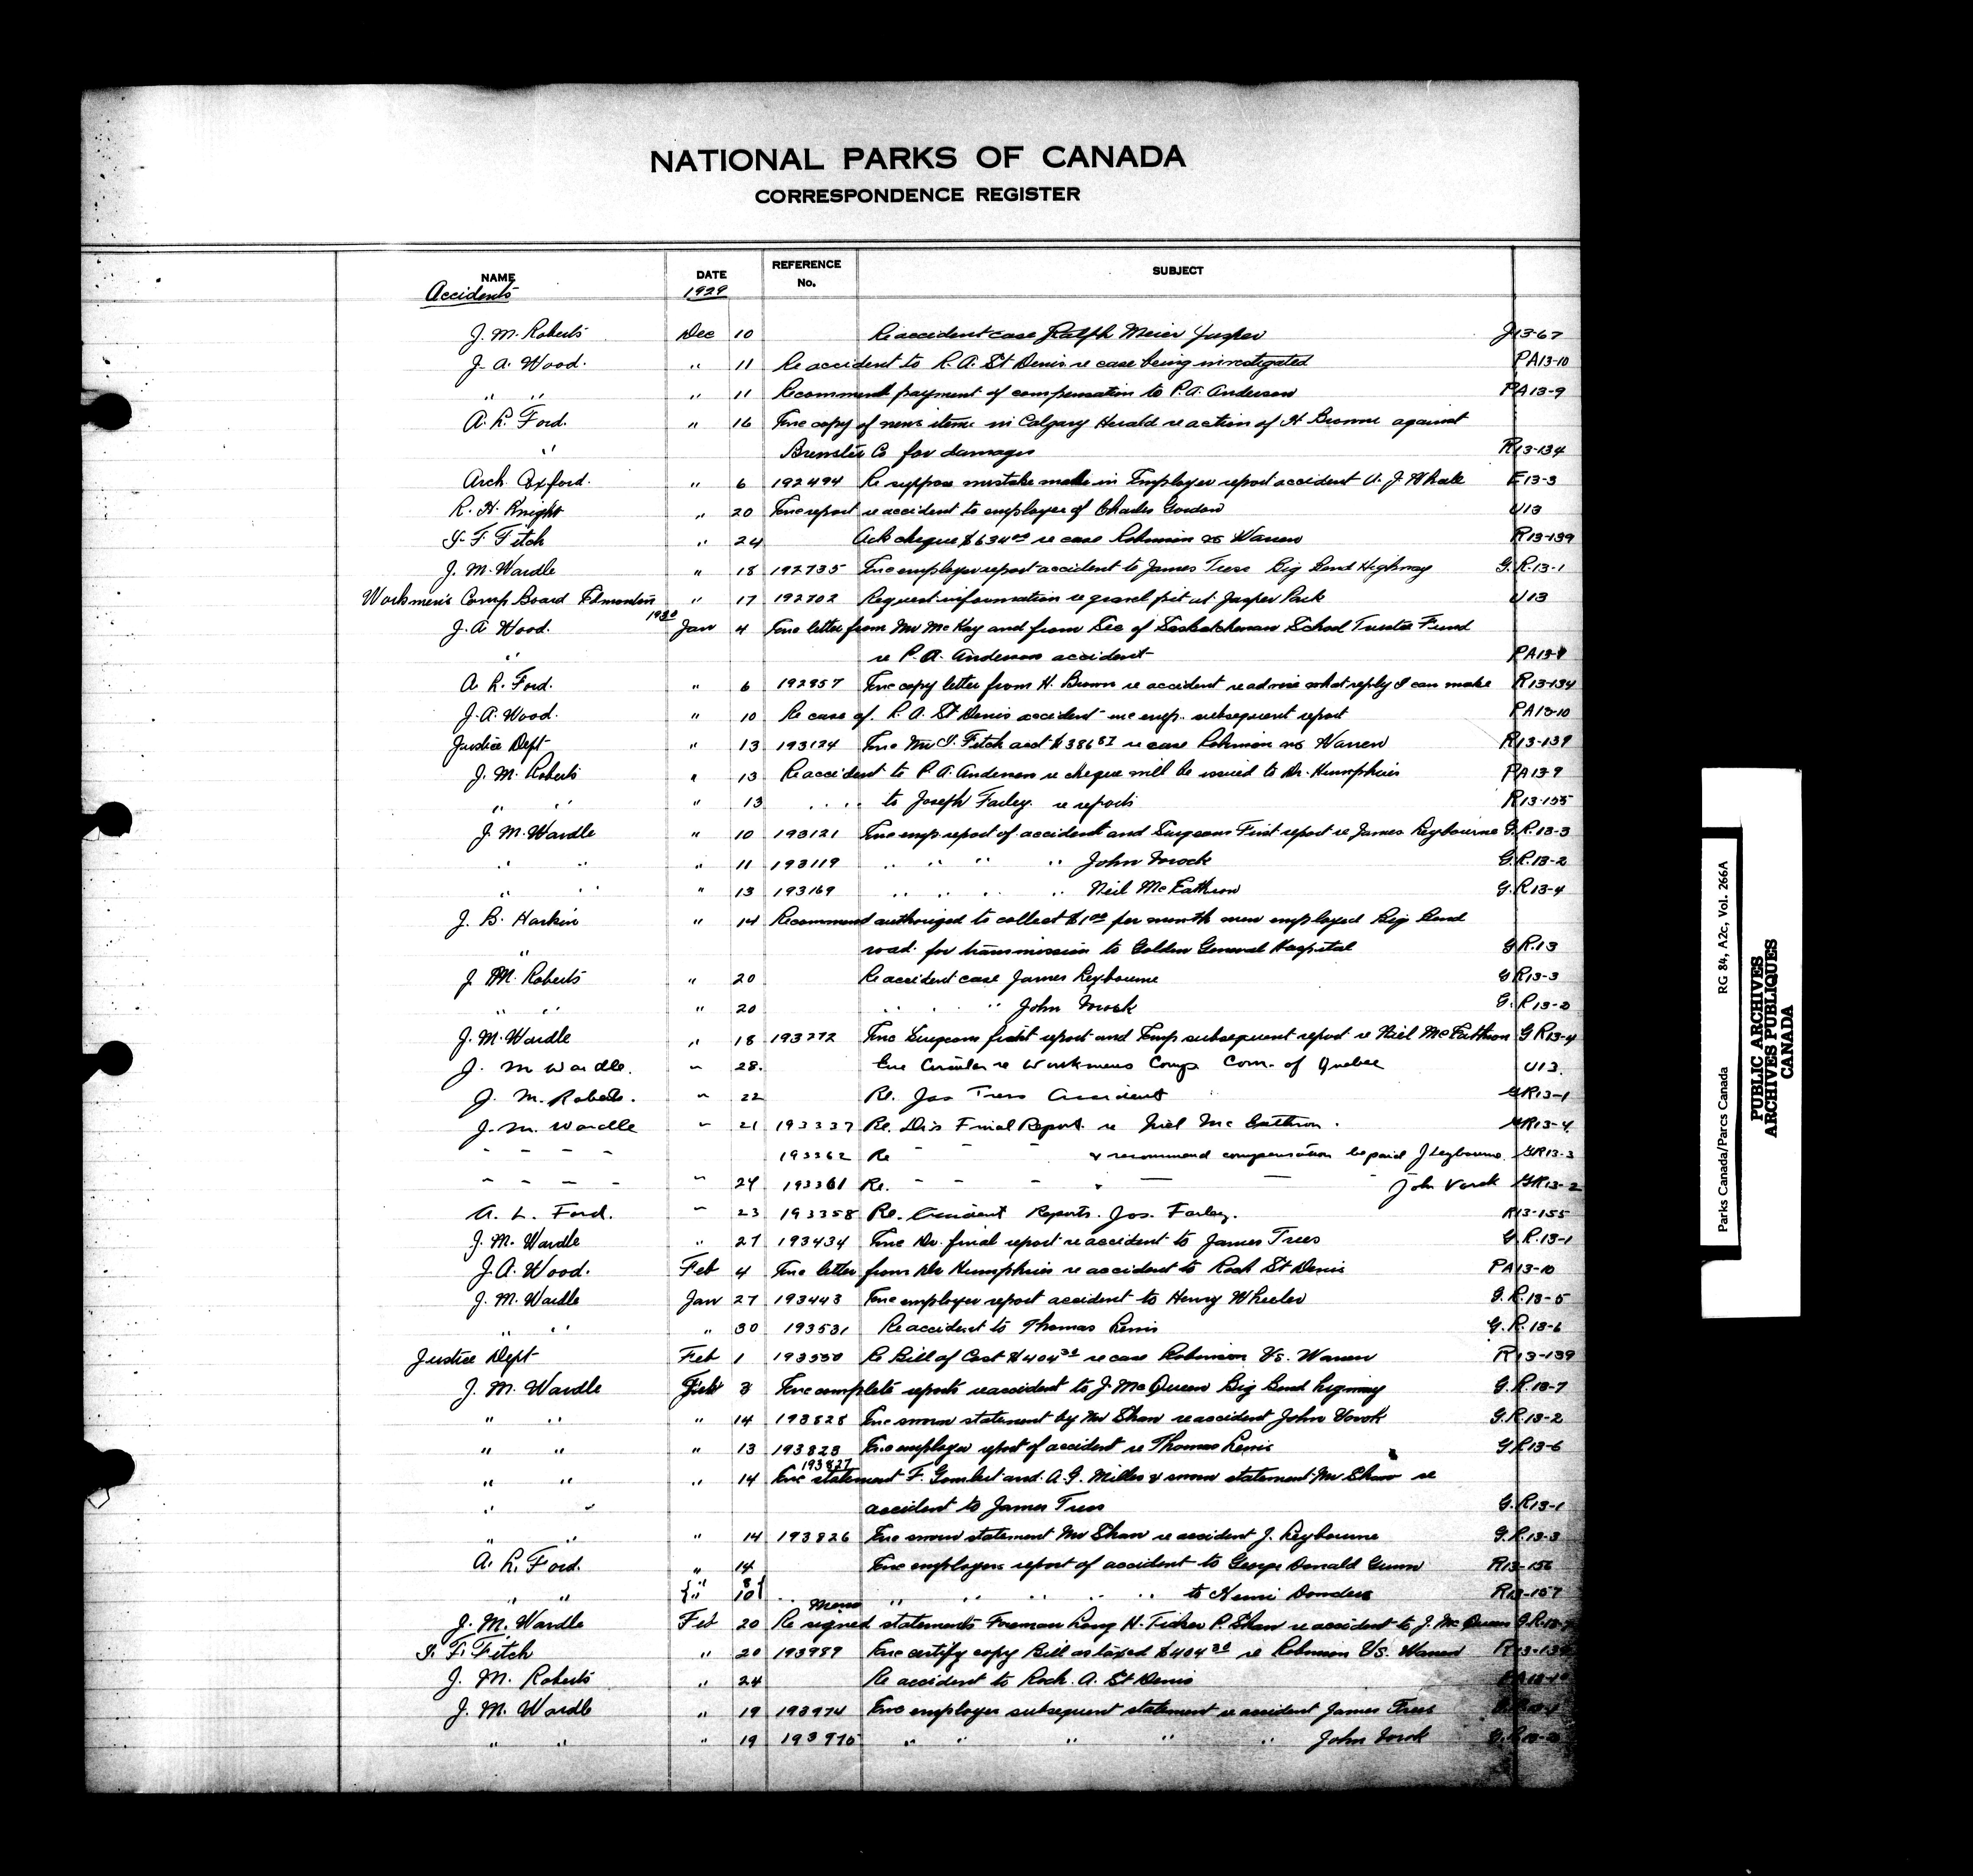 NATIONAL PARKS OF CANADA
CORRESPONDENCE REGISTER
NAME DATE REFERENCE No. SUBJECT
Accidents 1929
J. M. Roberts Dec 10 Re accident case Ralph Meier Jasper J13-67
J. A. Wood. " 11 Re accident to R. A. St Denis re case being investigated PA13-10
" " " 11 Recommend payment of compensation to P. A. Anderson PA13-9
A. L. Ford. " 16 Enc copy of news item in Calgary Herald re action of H Browne against
" Brewster Co for damages R13-134
Arch. Oxford. " 6 192494 Re suppose mistake made in Employer report accident U. J. Whale E13-3
R. H. Knight " 20 Enc report re accident to employee of Charles Gordon U13
I. F. Fitch " 24 Ack cheque $634.00 re case Robinson vs Warren R13-139
J. M. Wardle " 18 192735 Enc employer report accident to James Tress Big Bend Highway G.R.13-1
Workmen's Comp Board Edmonton " 17 192702 Request information re gravel pit at Jasper Park U13
1930
J. A Wood. Jan 4 Enc letter from Mr McKay and from Sec of Saskatchewan School Trustee Fund
" re P. A. Anderson accident PA13-9
A. L. Ford. " 6 192957 Enc copy letter from H. Brown re accident re advise what reply I can make R13-134
J. A. Wood. " 10 Re case of R. A. St Denis accident enc emp. subsequent report PA13-10
Justice Dept " 13 193124 Enc Mr I. Fitch acct $386.57 re case Robinson vs Warren R13-139
J. M. Roberts " 13 Re accident to P. A. Anderson re cheque will be issued to Dr. Humphries PA13-9
" " " 13 " " to Joseph Farley re reports R13-155
J. M. Wardle " 10 193121 Enc emp report of accident and Surgeons First report re James Leybourne G.R.13-3
" " " 11 193119 " " " " John Vorok G.R.13-2
" " " 13 193169 " " " " Neil McEathron G.R13-4
J. B. Harkin " 14 Recommend authorized to collect $1.00 per month men employed Big Bend
" road for transmission to Golden General Hospital GR13
J. M. Roberts " 20 Re accident case James Leybourne GR13-3
" " " 20 " " " John Vorok G.R13-2
J. M. Wardle " 18 193272 Enc Surgeons first report and Emp subsequent report re Niel McEathron GR13-4
J. M Wardle. " 28. Enc Circular re Workmens Comp Com. of Quebec U13.
J. M. Roberts. " 22 Re. Jas Tress Accident GR13-1
J. M. Wardle " 21 193337 Re. Drs Final Report re Niel McEathron. GR13-4
" " " " 193362 Re " " " & recommend compensation be paid J Leybourne. GR13-3
" " " " " 24 193361 Re. " " " " John Vorok GR13-2
A. L. Ford. " 23 193358 Re. Accident Reports. Jos. Farley. R13-155
J. M. Wardle " 27 193434 Enc Dr. final report re accident to James Tress G.R.13-1
J. A. Wood. Feb 4 Enc letter from Dr Humphries re accident to Roch St Denis PA13-10
J. M. Wardle Jan 27 193443 Enc employer report accident to Henry Wheeler G.R.13-5
" " " 30 193531 Re accident to Thomas Lewis G.R.13-6
Justice Dept Feb 1 193550 Re Bill of Cost $404.30 re case Robinson Vs. Warren R13-139
J. M. Wardle Feb 3 Enc complete reports re accident to J. McQueen Big Bend higway G.R.13-7
" " " 14 193828 Enc sworn statement by Mr Shaw re accident John Vorok G.R.13-2
" " " 13 193823 Enc employer report of accident re Thomas Lewis G.R13-6
193827
" " " 14 Enc statement F. Gombert and A. G. Miller & sworn statement Mr Shaw re
" " accident to James Tress G.R13-1
" " " 14 193826 Enc sworn statement Mr Shaw re accident J. Leybourne G.R.13-3
A. L. Ford. " 14 Enc employers report of accident to George Donald Gunn R13-156
" " { " 8 / " 10 } " " " " " " to Henri Donders R13-157
Memo
J. M. Wardle Feb 20 Re signed statements Foreman Long H. Ticker P. Shaw re accident to J. McQueen G.R.13-7
I. F. Fitch " 20 193989 Enc certify copy Bill as taxed $404.30 re Robinson Vs. Warren R13-139
J. M. Roberts " 24 Re accident to Roch. A. St Denis PA13-10
J. M. Wardle " 19 193974 Enc employer subsequent statement re accident James Tress
" " " 19 193975 " " " " " John Vorok
Parks Canada/Parcs Canada RG 84, A2c, Vol. 266A
PUBLIC ARCHIVES
ARCHIVES PUBLIQUES
CANADA